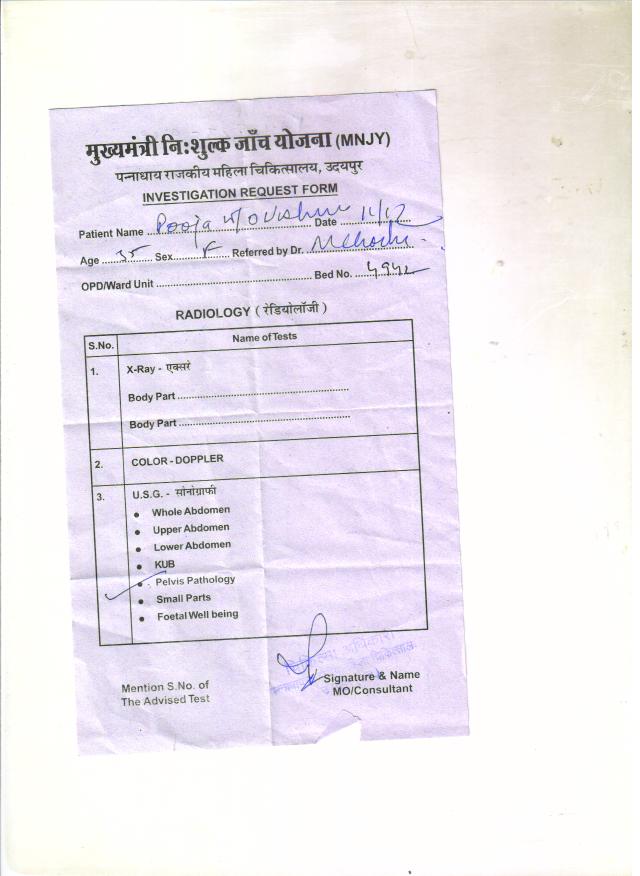 मुख्यमंत्री निःशुल्क जाँच योजना (MNJY)
पन्नाधाय राजकीय महिला चिकित्सालय, उदयपुर
INVESTIGATION REQUEST FORM
Patient Name Pooja w/o Date 11/12
Age 35 Sex F Referred by Dr.
OPD/Ward Unit Bed No. 4942
RADIOLOGY ( रेडियोलॉजी )
S.No. Name of Tests
1. X-Ray - एक्सरे
Body Part
Body Part
2. COLOR - DOPPLER
3. U.S.G. - सोनोग्राफी
• Whole Abdomen
• Upper Abdomen
• Lower Abdomen
• KUB
• Pelvis Pathology
• Small Parts
• Foetal Well being
Mention S.No. of
The Advised Test
Signature & Name
MO/Consultant